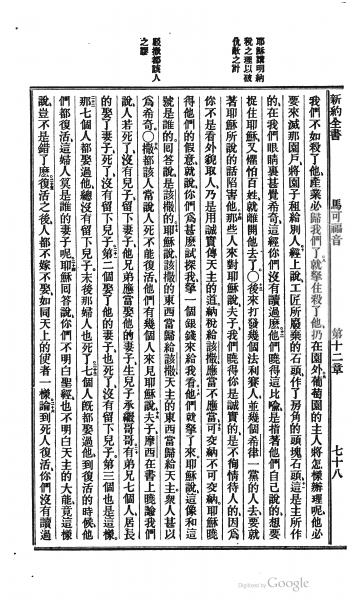 新約全書 馬可福音 第十二章 七十八
耶穌講明納
稅之理以破
仇敵之計
駁撒都該人
之謬
我們不如殺了他產業必歸我們了就拏住殺了他扔在園外葡萄園的主人將怎樣辦理呢他必
要來滅那園戶將園子租給別人經上說工匠所廢棄的石頭作了房角的頭塊石頭這是主所作
的在我們眼睛裏甚覺希奇這經你們沒有讀過麽他們曉得這比喻是指著他們自己說的想要
捉住耶穌又懼怕百姓就離開他去了〇後來打發幾個法利賽人並幾個希律一黨的人去要就
著耶穌所說的話陷害他那些人來對耶穌說夫子我們曉得你是誠實的是不徇情待人的因爲
你不是看外貌取人乃是用誠實傳天主的道納稅給該撒應當不應當可交納不可交納耶穌曉
得他們的假意就說你們爲甚麽試探我拏一個銀錢來給我看他們就拏了來耶穌說這像和這
號是誰的回答說是該撒的耶穌說該撒的東西當歸給該撒天主的東西當歸給天主衆人甚以
爲希奇〇撒都該人常說人死不能復活他們有幾個人來見耶穌說夫子摩西在書上曉諭我們
說人若死了沒有兒子留下妻子他兄弟應當娶他的妻子生兒子承繼哥哥有弟兄七個人居長
的娶了妻子死了沒有兒子留下第二個娶了他的妻子也死了沒有留下兒子第三個也是這樣
那七個人都娶過他總沒有留下兒子末後那婦人也死了七個人既都娶過他到復活的時候他
們都復活這婦人算是誰的妻子呢耶穌回答說你們不明白聖經也不明白天主的大能竟這樣
說豈不是錯了麽復活之後人都不嫁不娶如同天上的使者一樣論到死人復活你們沒有讀過
Digitized by Google